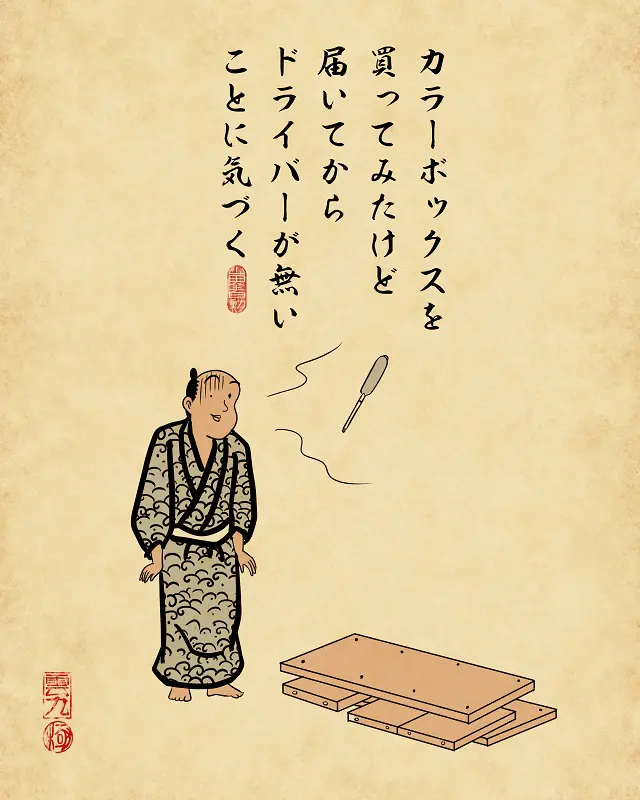 カラーボックスを
買ってみたけど
届いてから
ドライバーが無い
ことに気づく